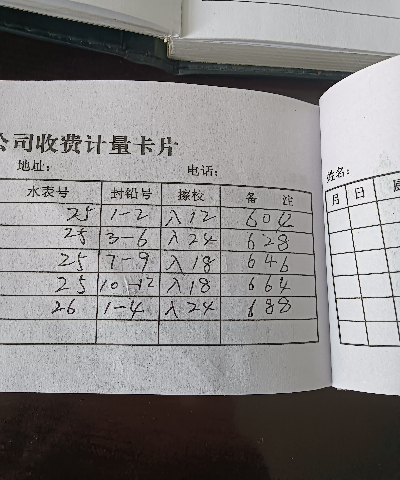 公司收费计量卡片
地址： 电话：
水表号 封铅号 擦校 备 注
25 1-2 入12 604
25 3-6 入24 628
25 7-9 入18 646
25 10-12 入18 664
26 1-4 入24 688
姓名：
月 日